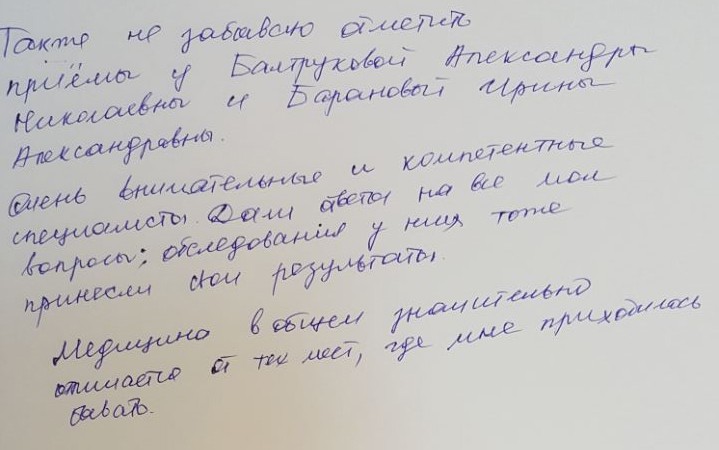 Также не забываю отметить
приёмы у Балтруковой Александры
Николаевны и Барановой Ирины
Александравны.
Очень внимательные и компетентные
специалисты. Дали ответы на все мои
вопросы; обследования у них тоже
принесли свои результаты.
Медицина в общем значительно
отличается от тех мест, где мне приходилось
бывать.